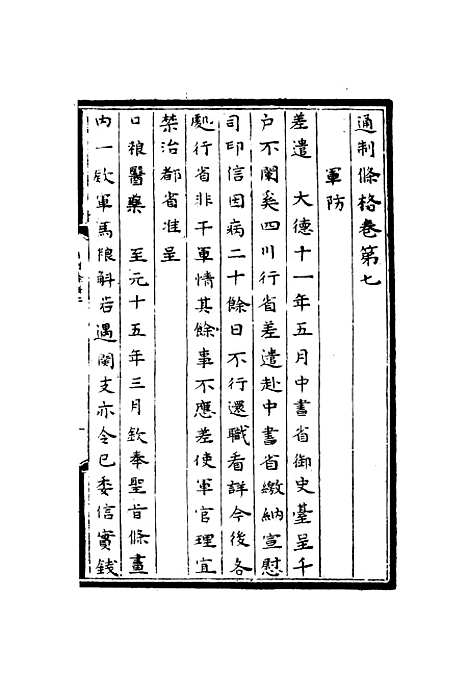 通制條格卷第七
軍防
差遣　大德十一年五月中書省御史臺呈千
户不闌奚四川行省差遣赴中書省繳納宣慰
司印信因病二十餘日不行還職看詳今後各
處行省非干軍情其餘事不應差使軍官理宜
禁治都省准呈
口粮醫藥　至元十五年三月欽奉聖旨條畫
内一款軍馬粮斛若遇闕支亦令已委信實錢